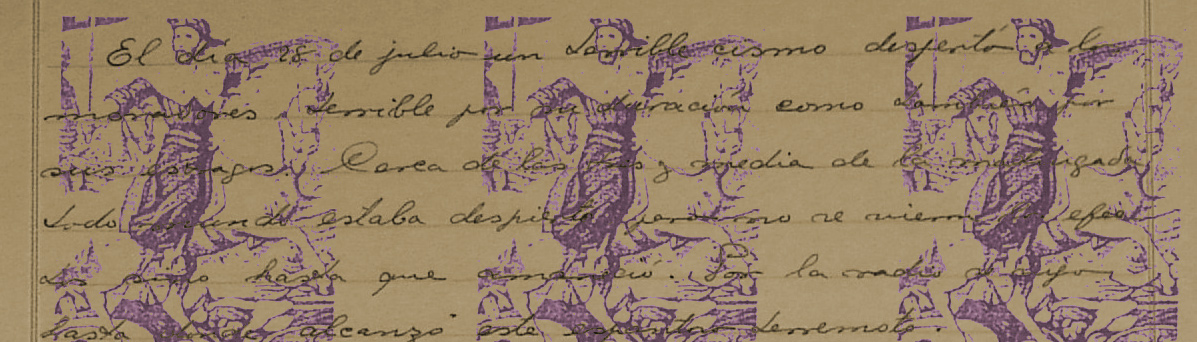 El día 28 de julio un terrible cismo despertó a los
moradores, terrible por su duración como también por
sus estragos. Cerca de las tres y media de la madrugada
todo mundo estaba despierto, pero no se vieron los efec-
tos sino hasta que amaneció. Por la radio se oyó
hasta donde alcanzó este terremoto.